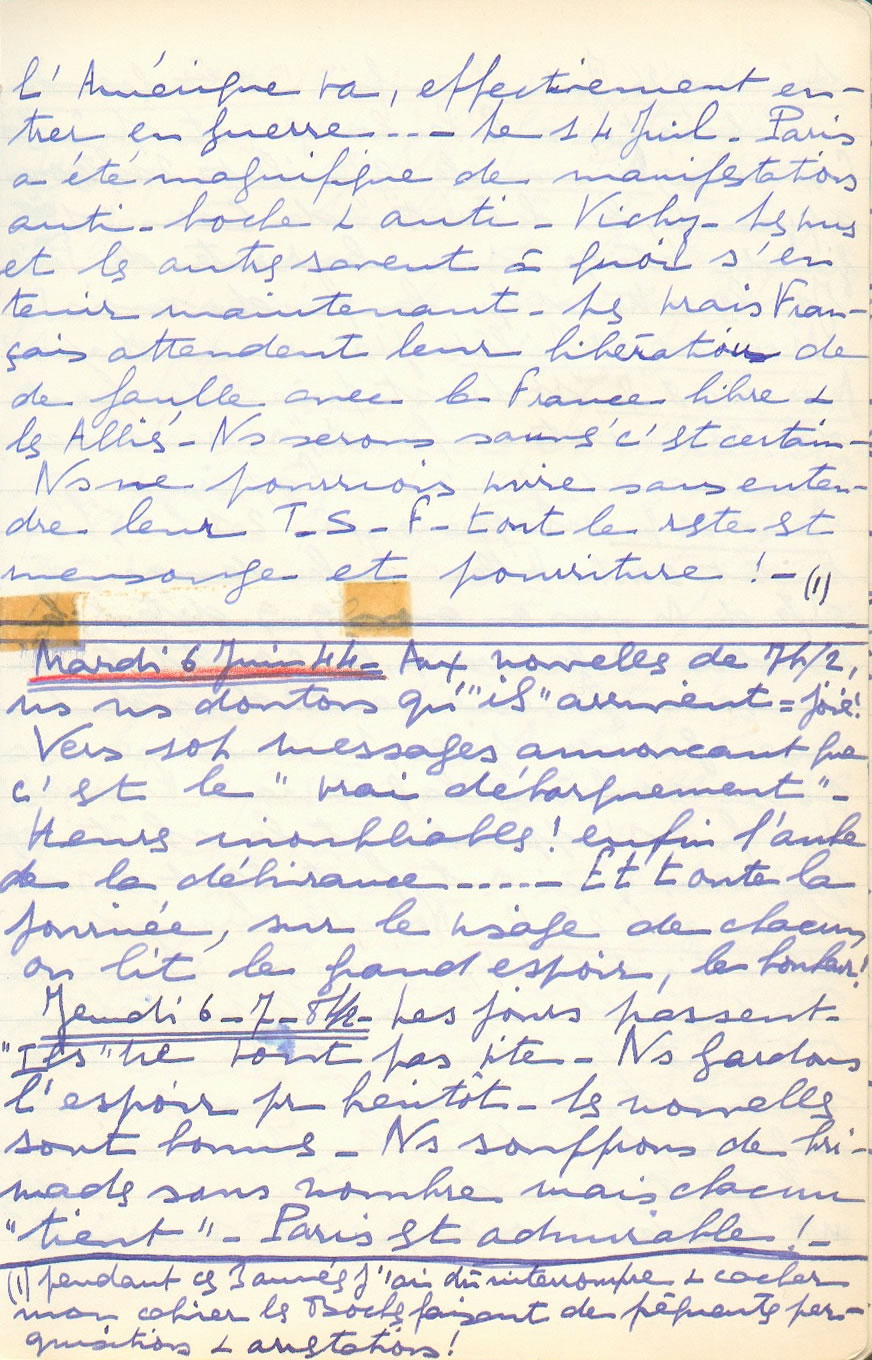 l'Amérique va, effectivement en-
trer en guerre... - Le 14 Juil - Paris
a été magnifique de manifestations
anti-boche & anti-Vichy - Les uns
et les autres savent à quoi s'en
tenir maintenant - Les vrais Fran-
çais attendent leur libération de
de Gaulle avec la France libre &
les Alliés - Ns serons sauvés c'est certain -
Ns ne pourrions vivre sans enten-
dre leur T.S.F - tout le reste est
mensonge et pourriture ! - (1)
Mardi 6 Juin 44 - Aux nouvelles de 7h/2,
ns ns doutons qu'"ils" arrivent = joie!
Vers 10h messages annoncant que
c'est le "vrai débarquement" -
Heures inoubliables ! enfin l'aube
de la délivrance ..... - Et toute la
journée, sur le visage de chacun
on lit le grand espoir, le bonheur!
Jeudi 6 - 7 - Les jours passent -
"Ils" ne vont pas vite - Ns gardons
l'espoir pr bientôt - les nouvelles
sont bonnes - Ns souffrons de bri-
mades sans nombre mais chacun
"tient" - Paris est admirable ! -
(1) pendant ces 3 années j'ai dû interrompre & cacher
mon cahier les Boches faisant de fréquentes per-
quisitions & arrestations !